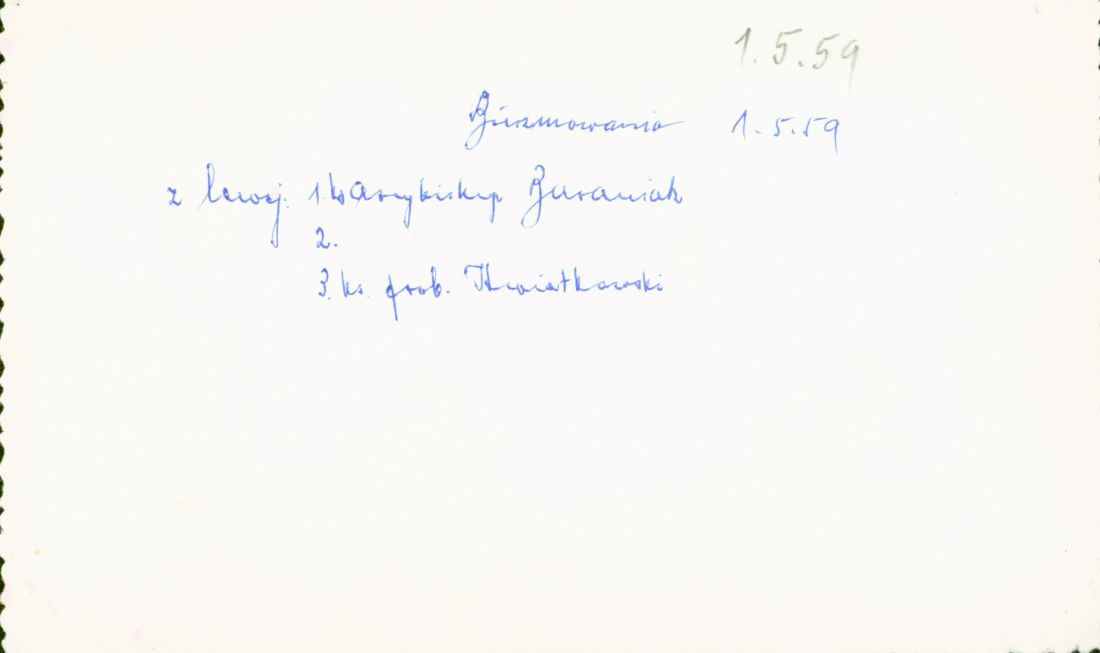 1.5.59
Bierzmowania 1.5.59
z lewej: 1. ks Arcybiskup Baraniak
2.
3. ks. prob. Kwiatkowski